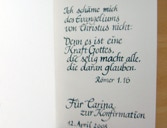 Ich schäme mich
des Evangeliums
von Christus nicht:
Denn es ist eine
Kraft Gottes,
die selig macht alle,
die daran glauben.
Römer 1.16
Für Carina
zur Konfirmation
12. April 2008